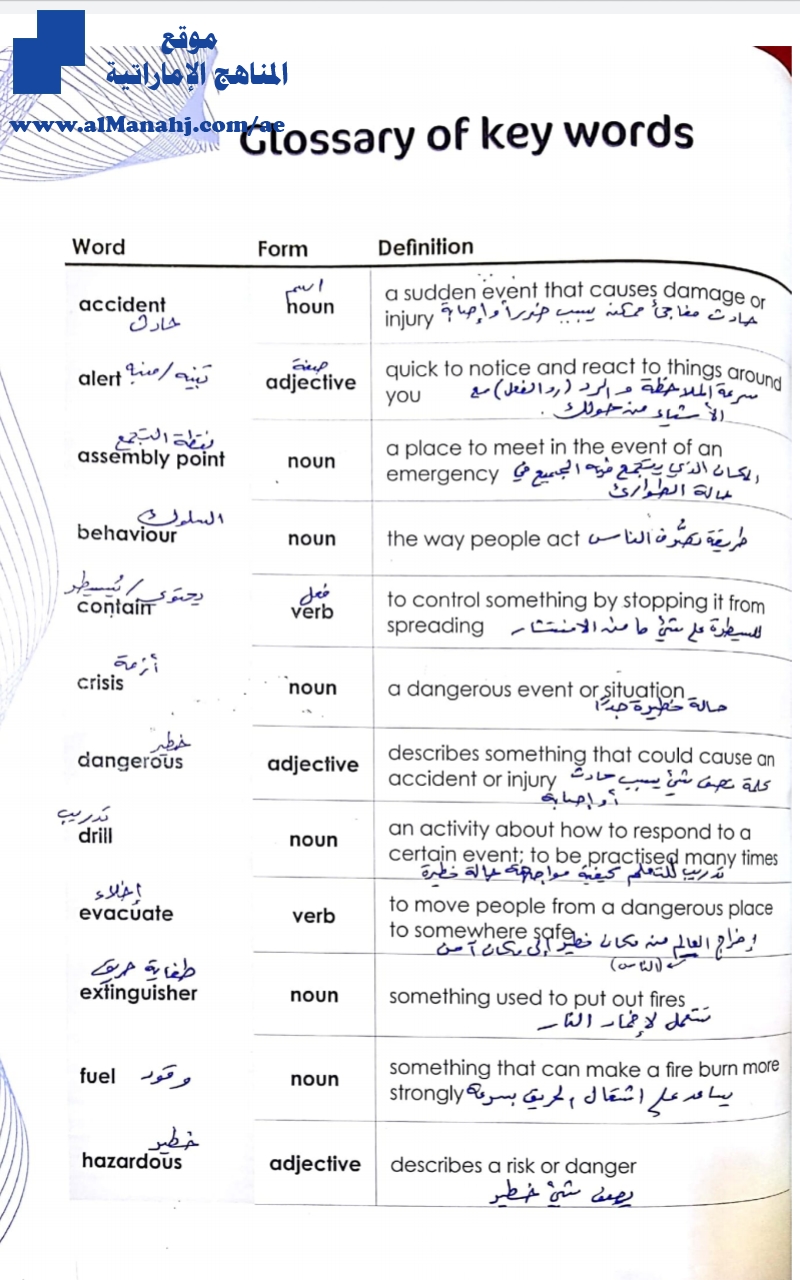 موقع
المناهج الإماراتية
www.alManahj.com/ae
Glossary of key words
Word Form Definition
accident حادث
noun اسم
a sudden event that causes damage or
injury حادث مفاجئ ممكن يسبب ضرراً أو إصابة
alert تنبيه / منبه
adjective صفة
quick to notice and react to things around
you سرعة الملاحظة و الرد (رد الفعل) مع
الأشياء من حولك.
نقطة التجمع
assembly point noun
a place to meet in the event of an
emergency المكان الذي يتجمع فيه الجميع في
حالة الطوارئ
السلوك
behaviour noun the way people act طريقة تصرُّف الناس
يحتوي / يُسيطر
contain
فعل
verb
to control something by stopping it from
spreading للسيطرة على شيء ما من الانتشار
أزمة
crisis noun a dangerous event or situation
حالة خطيرة جداً
خطير
dangerous adjective
describes something that could cause an
accident or injury كلمة تصف شيء يسبب حادث
أو إصابة
تدريب
drill noun
an activity about how to respond to a
certain event; to be practised many times
تدريب للتعلم كيفية مواجهة حالة خطرة
إخلاء
evacuate verb
to move people from a dangerous place
to somewhere safe
إخراج العالم من مكان خطير إلى مكان آمن
(الناس)
طفاية حريق
extinguisher noun something used to put out fires
تستعمل لإخماد النار
fuel وقود noun
something that can make a fire burn more
strongly يساعد على اشتعال الحريق بسرعة
خطير
hazardous adjective describes a risk or danger
يصف شيء خطير